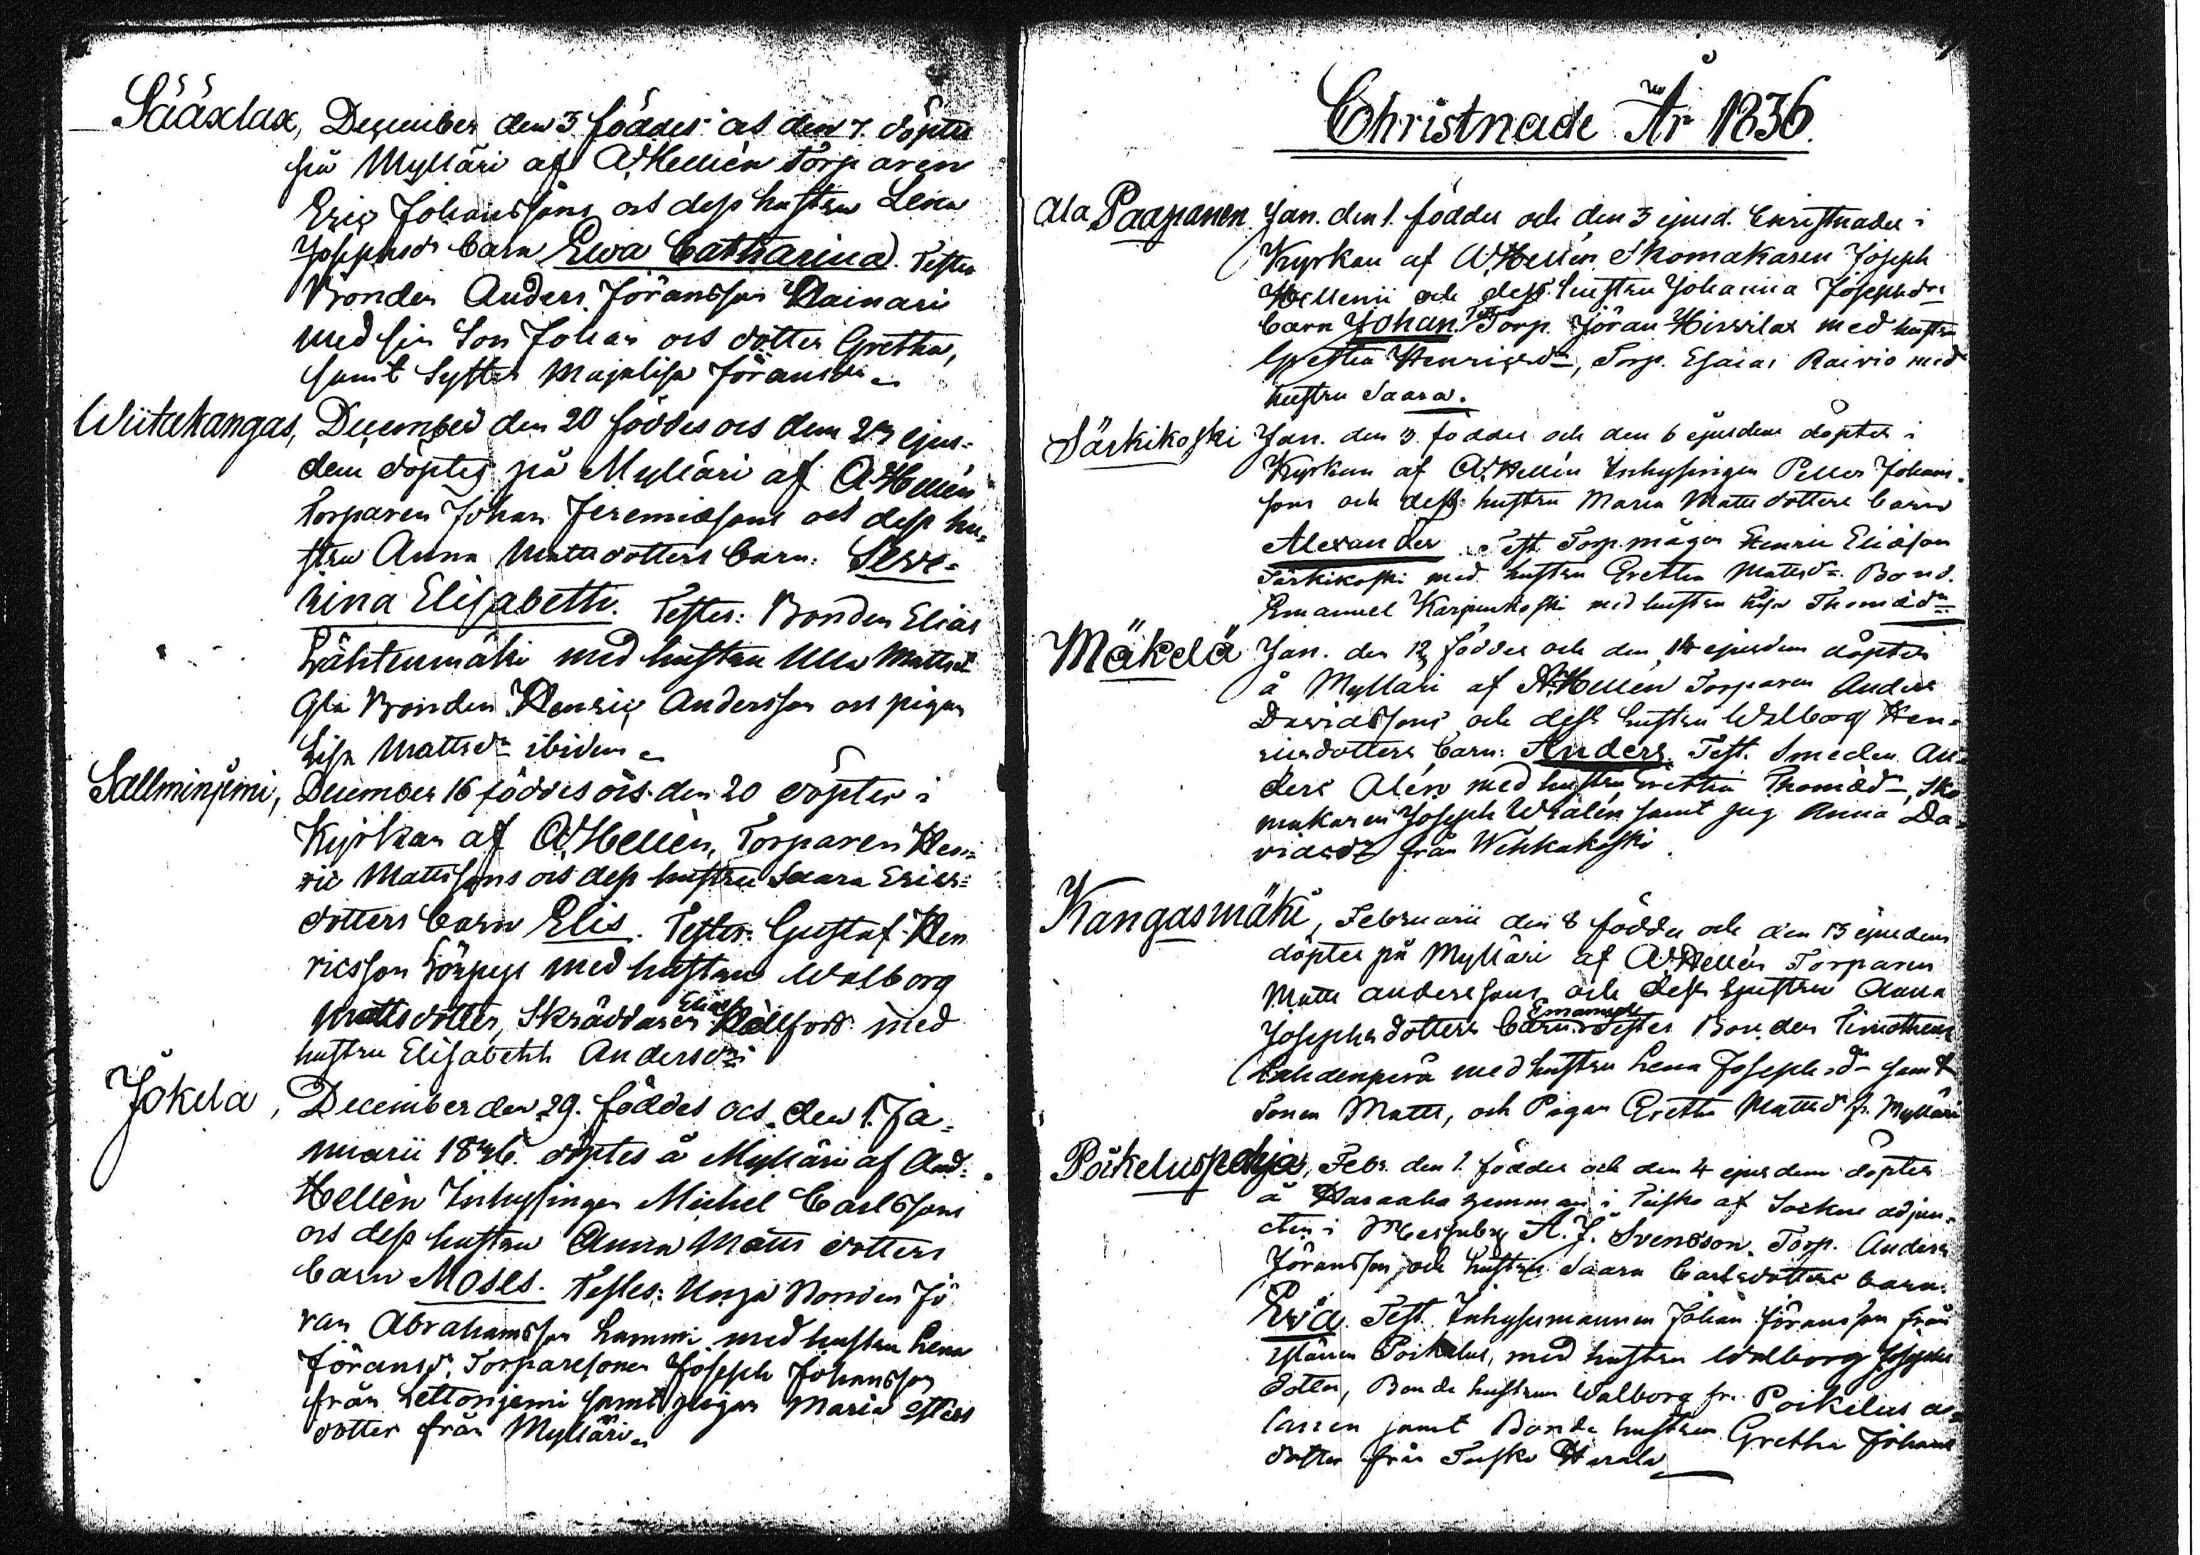 Sääxlax, December den 3 föddes och den 7 döptes
på Mylläri af A. Hellén Torparen
Eric Johanssons och dess hustru Lena
Josephsdr barn Ewa Catharina. Testes
Bonden Anders Jöransson Kainari
med sin Son Johan och dotter Gretha,
samt Syster Majalisa Jöransdr
Wiitakangas, December den 20 föddes och den 25 ejus-
dem döptes på Mylläri af A. Hellén
torparen Johan Jeremiæsons och dess hu-
stru Anna Mattsdotters barn: Seve-
rina Elisabeth. Testes: Bonden Elias
Lähtenmäki med hustru Ulla Mattsdr
Gla Bonden Henric Andersson och pigan
Lisa Mattsdr ibidem
Sallminjemi, December 16 föddes och den 20 döptes i
Kyrkan af A. Hellén, Torparen Hen-
ric Mattssons och dess hustru Saara Erics-
dotters barn Elis. Testes: Gustaf Hen
ricsson Hörppy med hustru Walborg
Mattsdotter, Skräddaren Elias Hällfors med
hustru Elisabeth Andersdr
Jokela, December den 29. föddes och den 1. Ja-
nuarii 1836. döptes å Mylläri af And.
Hellén Inhysingen Michel Carlssons
och dess hustru Anna Matts dotters
barn Moses. Testes: Unga Bonden Jö
ran Abrahamsson Lammi med hustru Lena
Jöransdr. Torparesonen Joseph Johansson
från Lettonjemi samt pigan Maria
dotter från Mylläri
Christnade År 1836.
Ala Paapanen. Jan. den 1. föddes och den 3 ejusd. Christnades i
Kyrkan af A. Hellén Skomakaren Joseph
Hellenii och dess hustru Johanna Josephsdrs
barn Johan. Test. Torp. Jöran Hirsilax med hustru
Gretha Henricsdr, Torp. Esaias Raivio med
hustru Saara.
Särkikoski Jan. den 3. föddes och den 6 ejusdem döptes i
Kyrkan af A. Hellén Inhysingen Petter Johans-
sons och dess hustru Maria Mattsdotters barn
Alexander. Test. Torp.mågen Henric Eliasson
Särkikoski med hustru Gretha Mattsdr. Bond.
Emanuel Karjenkoski med hustru Lisa Thomædr
Mäkelä Jan. den 12 föddes och den 14 ejusdem döptes
å Mylläri af A. Hellén Torparen Anders
Davidssons och dess hustru Walborg Hen-
ricsdotters barn: Anders. Test. Smeden An-
ders Alén med hustru Gretha Thomædr, Sko
makaren Joseph Wralén samt pig Anna Da-
vidsdr från Wehkakoski
Kangasmäki, Februarii den 8 föddes och den 13 ejusdem
döptes på Mylläri af A. Hellén Torparen
Matts Anderssons och dess hustru Anna
Josephsdotters barn Emanuel Testes Bonden Timotheus
Lahdenperä med hustru Lena Josephsdr samt
Sonen Matts, och Pigan Gretha Mattsd fr. Mylläri
Poikeluspohja, Febr. den 2. föddes och den 4 ejusdem döptes
å Haraala hemman i Teisko af Sockne adjun-
cten i Messuby A. J. Svensson. Torp. Anders
Jöransson och hustru Saara Carlsdotters barn:
Eva. Test. Inhysemannen Johan Jöransson från
Poikelus, med hustru Walborg Josephs
dotter, Bonde hustrun Walborg fr. Poikelus
samt Bonde hustrun Gretha Johans
dotter från Teisko Harala